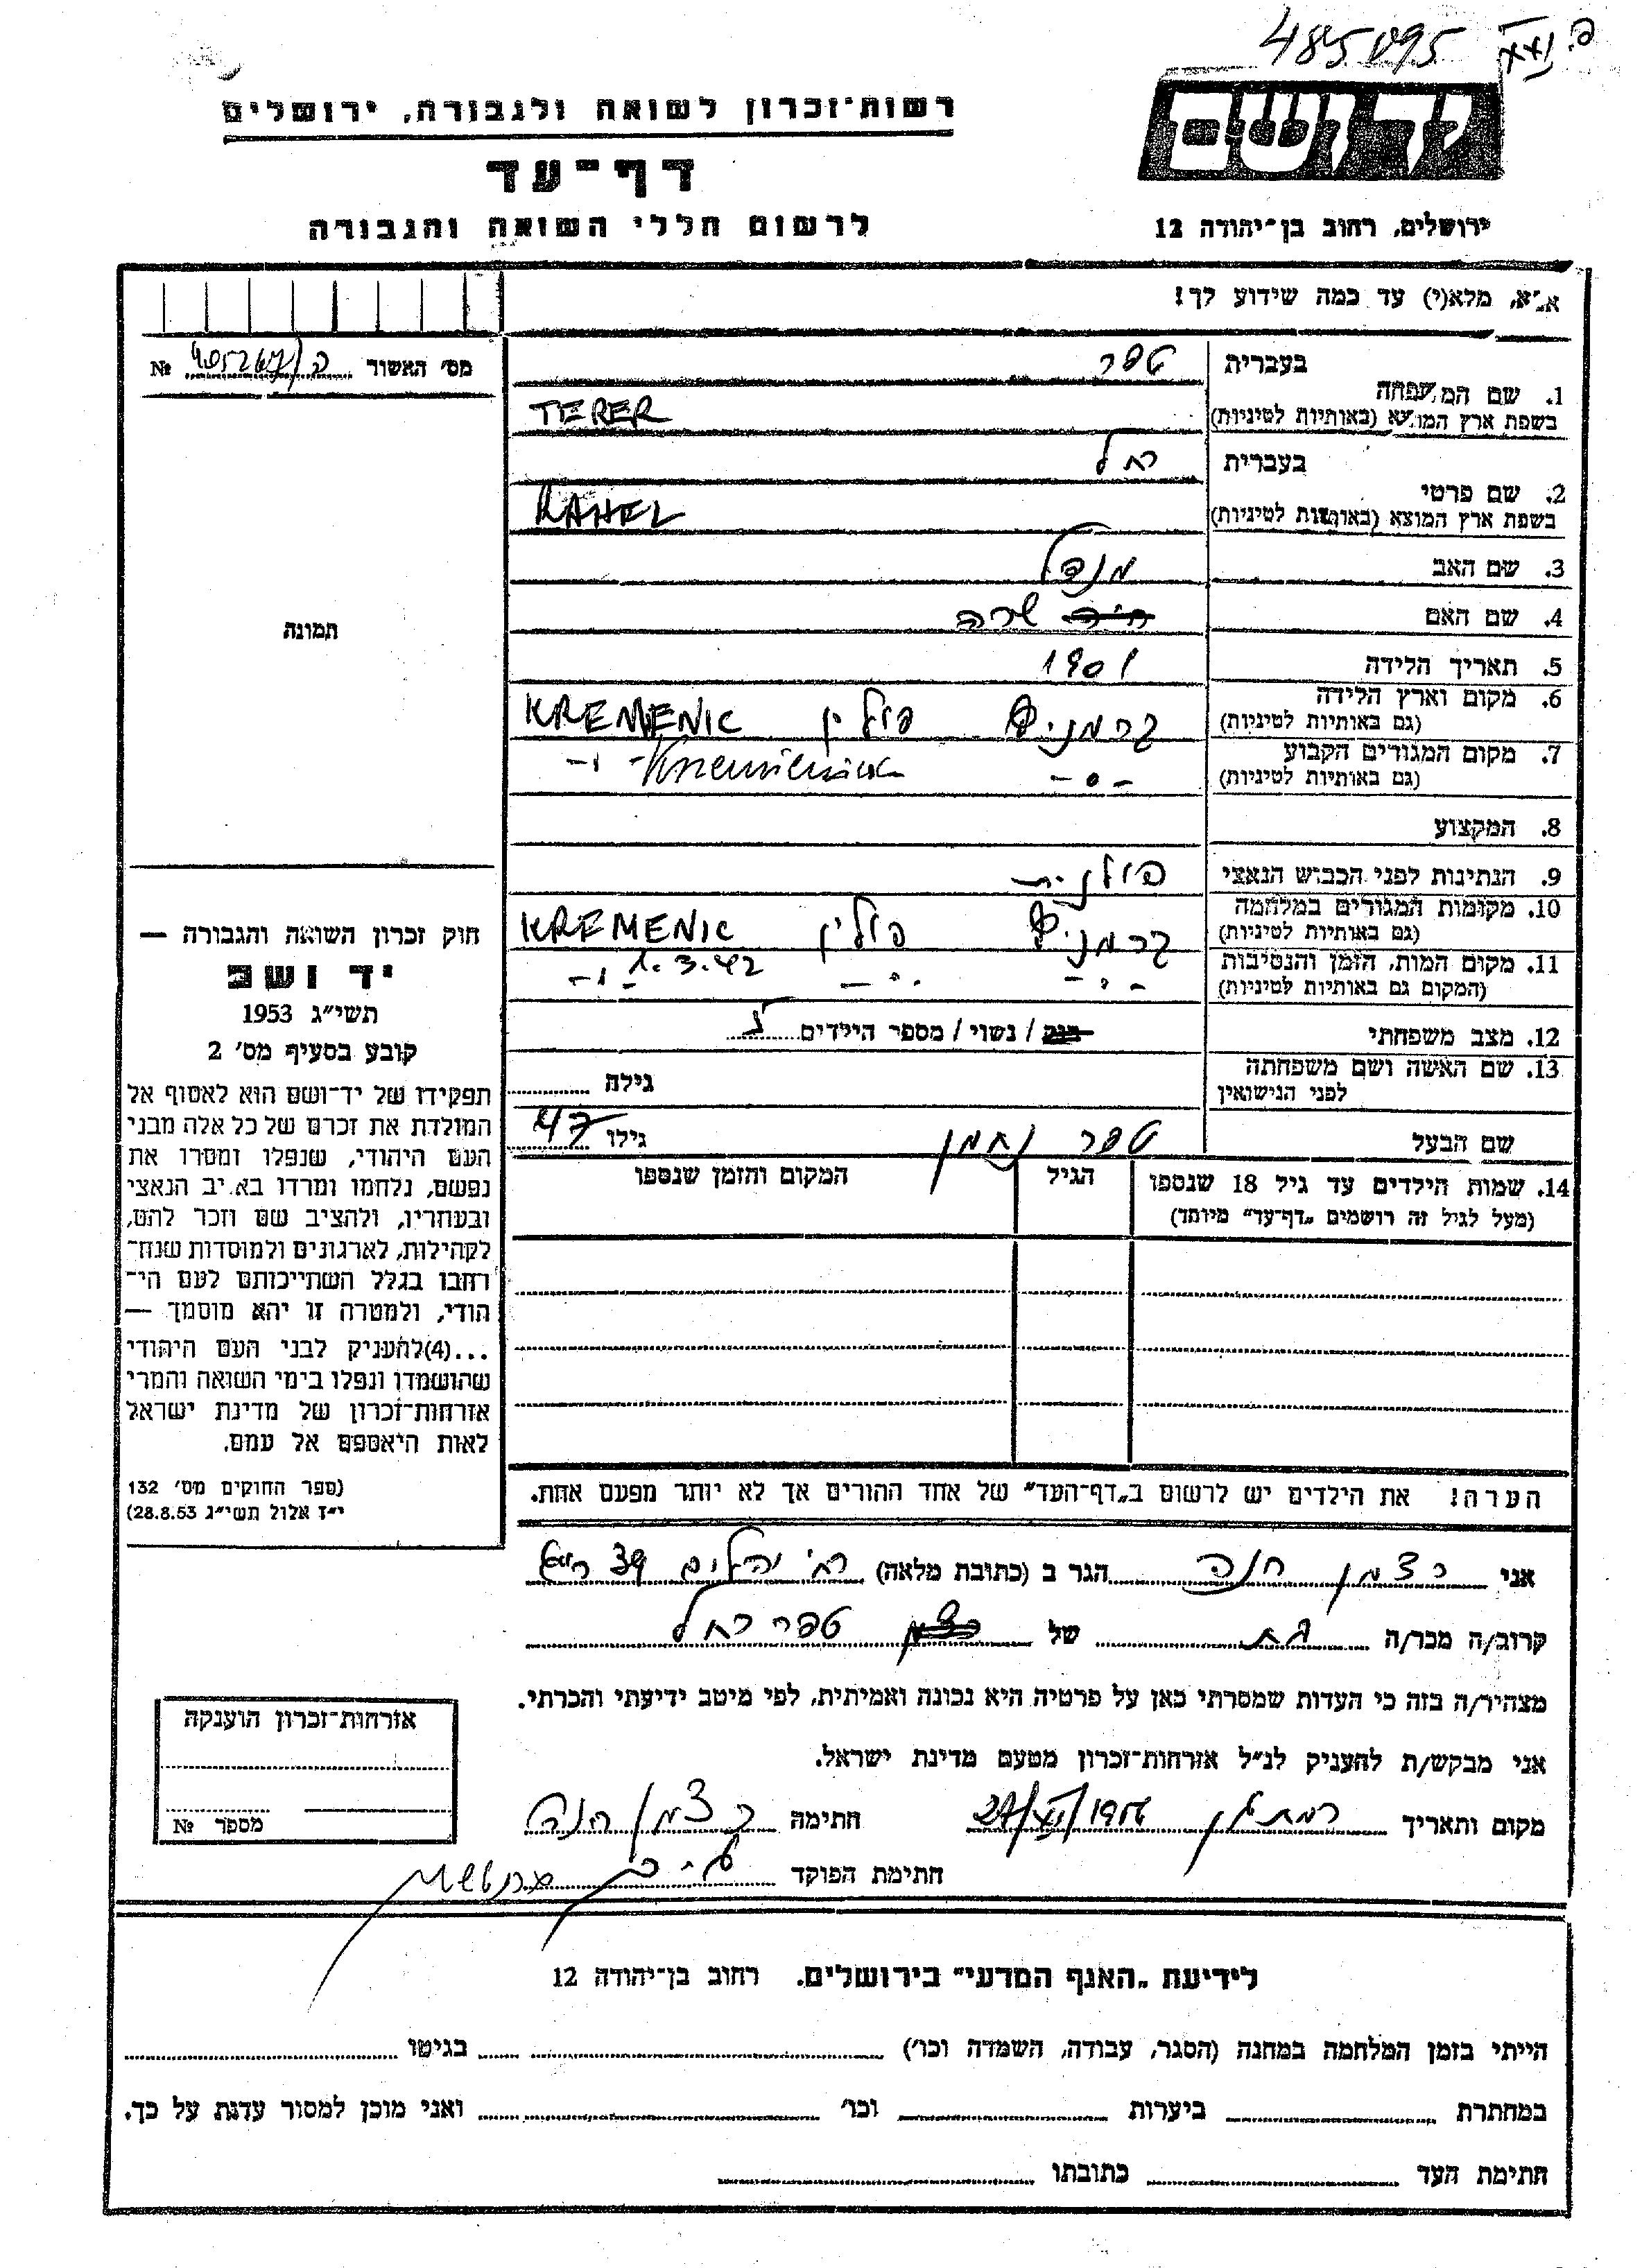 485095
רשות־זכרון לשואה ולגבורה, ירושלים
יד ושם
דף־עד
לרשום חללי השואה והגבורה
ירושלים, רחוב בן־יהודה 12
אנא, מלא(י) עד כמה שידוע לך!
מס׳ האשור №
1. שם המשפחה
בעברית טפר
בשפת ארץ המוצא (באותיות לטיניות) TERER
2. שם פרטי
בעברית רחל
בשפת ארץ המוצא (באותיות לטיניות) RAHEL
3. שם האב מנדל
4. שם האם שרה
5. תאריך הלידה 1901
6. מקום וארץ הלידה (גם באותיות לטיניות) קרמניץ פולין KREMENIC
7. מקום המגורים הקבוע (גם באותיות לטיניות) - " - - " -
8. המקצוע
9. הנתינות לפני הכבוש הנאצי פולנית
10. מקומות המגורים במלחמה (גם באותיות לטיניות) קרמניץ פולין KREMENIC
11. מקום המות, הזמן והנסיבות (המקום גם באותיות לטיניות) - " - - " - 1.3.42 - " -
12. מצב משפחתי רווק / נשוי / מספר הילדים
13. שם האשה ושם משפחתה לפני הנישואין גילה
שם הבעל טפר נחמן גילו 47
14. שמות הילדים עד גיל 18 שנספו (מעל לגיל זה רושמים „דף־עד״ מיוחד) הגיל המקום והזמן שנספו
הערה! את הילדים יש לרשום ב„דף־העד״ של אחד ההורים אך לא יותר מפעם אחת.
תמונה
חוק זכרון השואה והגבורה —
יד ושם
תשי״ג 1953
קובע בסעיף מס׳ 2
תפקידו של יד־ושם הוא לאסוף אל
המולדת את זכרם של כל אלה מבני
העם היהודי, שנפלו ומסרו את
נפשם, נלחמו ומרדו באויב הנאצי
ובעוזריו, ולהציב שם וזכר להם,
לקהילות, לארגונים ולמוסדות שנח־
רבו בגלל השתייכותם לעם הי־
הודי, ולמטרה זו יהא מוסמך —
...(4)להעניק לבני העם היהודי
שהושמדו ונפלו בימי השואה והמרי
אזרחות־זכרון של מדינת ישראל
לאות היאספם אל עמם.
(ספר החוקים מס׳ 132
י״ז אלול תשי״ג 28.8.53)
אני כצמן חנה הגר ב (כתובת מלאה) רח׳ יהלום 39
קרוב/ה מכר/ה בת של טפר רחל
מצהיר/ה בזה כי העדות שמסרתי כאן על פרטיה היא נכונה ואמיתית, לפי מיטב ידיעתי והכרתי.
אני מבקש/ת להעניק לנ״ל אזרחות־זכרון מטעם מדינת ישראל.
מקום ותאריך רמת גן חתימה כצמן חנה
חתימת הפוקד
אזרחות־זכרון הוענקה
מספר №
לידיעת „האגף המדעי״ בירושלים. רחוב בן־יהודה 12
הייתי בזמן המלחמה במחנה (הסגר, עבודה, השמדה וכו׳) בגיטו
במחתרת ביערות וכו׳ ואני מוכן למסור עדות על כך.
חתימת העד כתובתו